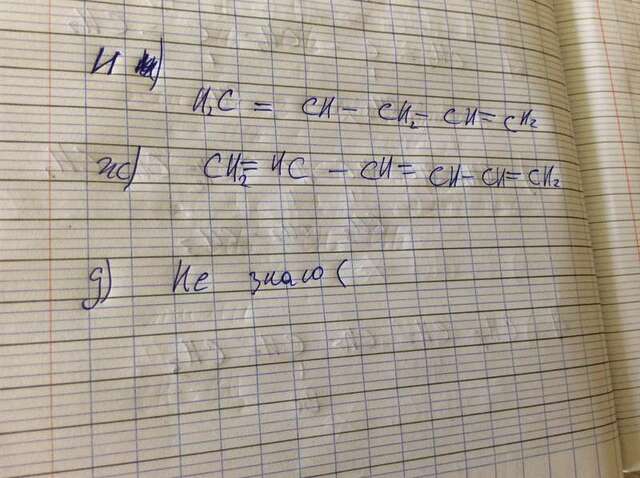 и)
H₂C = CH - CH₂ - CH = CH₂
ж) CH₂ = HC - CH = CH - CH = CH₂
д) Не знаю (